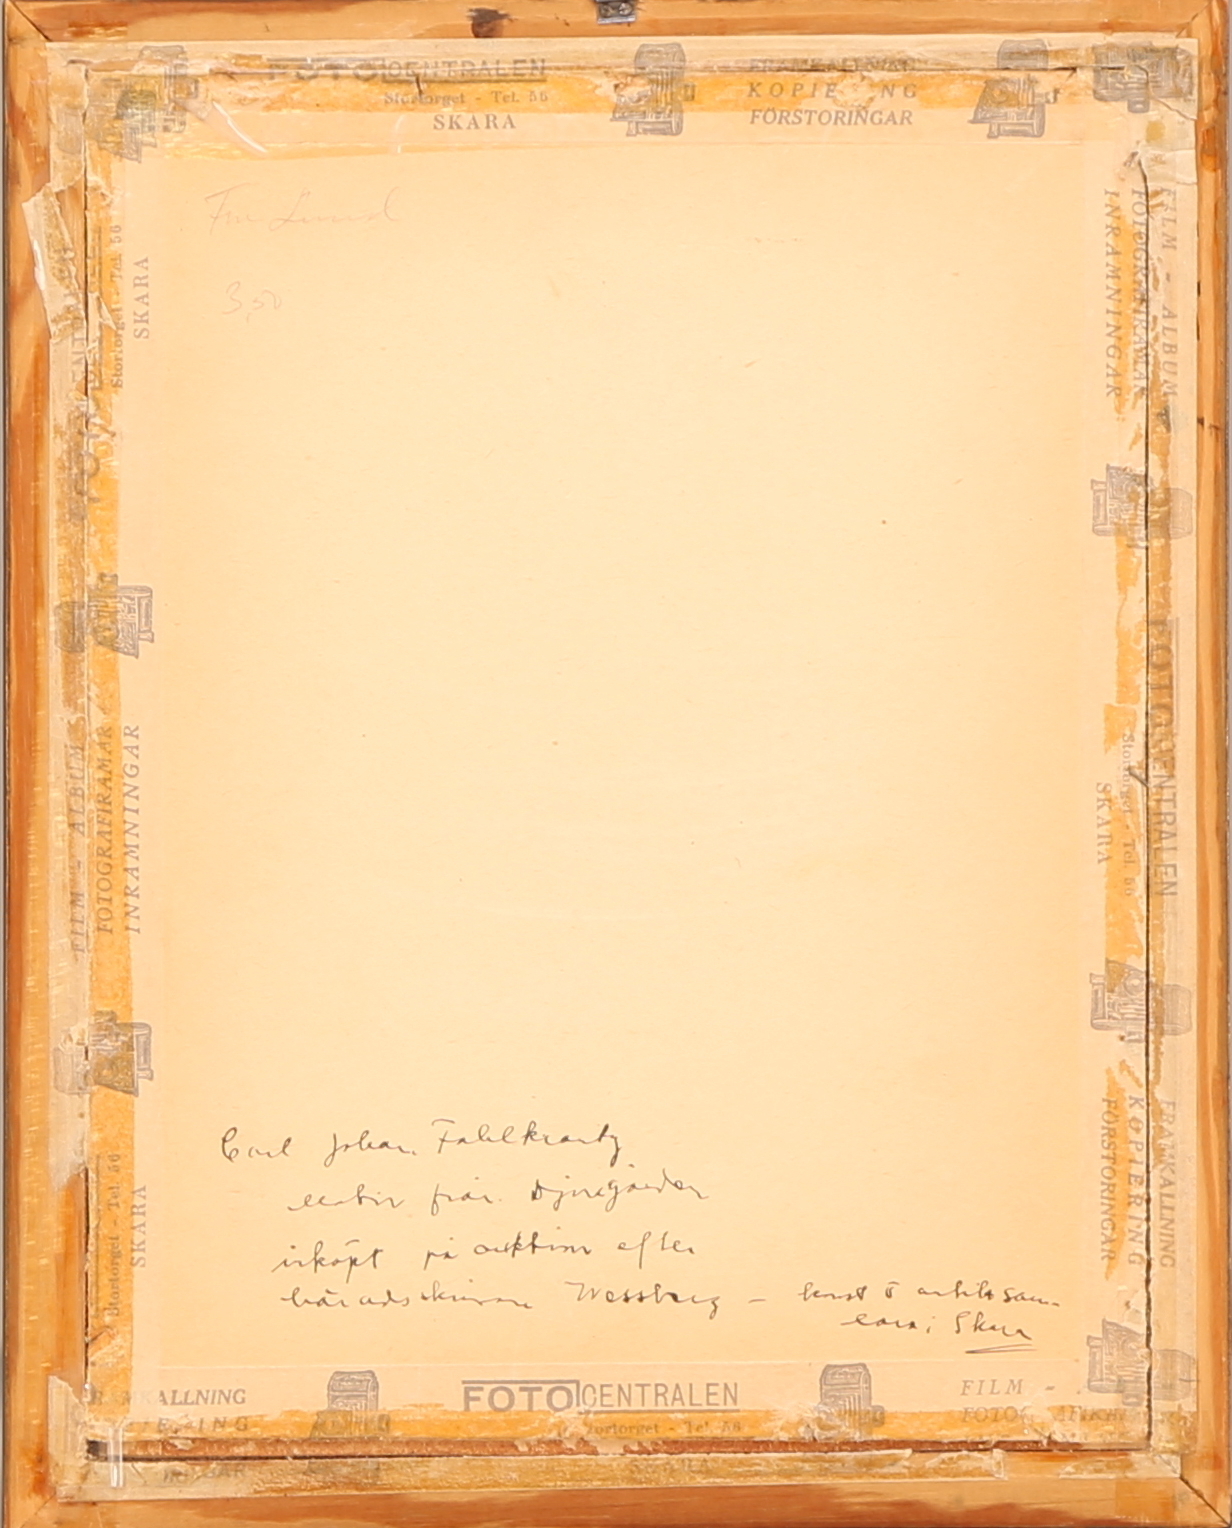 FOTOCENTRALEN
Stortorget - Tel. 56
SKARA
FRAMKALLNING
KOPIE NG
FÖRSTORINGAR
Fru Lund
3,50
Stortorget - Tel. 56
SKARA
FILM - ALBUM
FOTOGRAFIRAMAR
INRAMNINGAR
Stortorget - Tel. 56
SKARA
FILM - ALBUM
FOTOGRAFIRAMAR
INRAMNINGAR
FOTOCENTRALEN
Stortorget - Tel. 56
SKARA
FRAMKALLNING
KOPIERING
FÖRSTORINGAR
Carl Johan Fahlkrantz
motiv från Djurgården
inköpt på auktion efter
häradsskrivare Wessberg – konst o antiksam-
lare i Skara
KALLNING
FOTOCENTRALEN
Stortorget - Tel. 56
FILM -